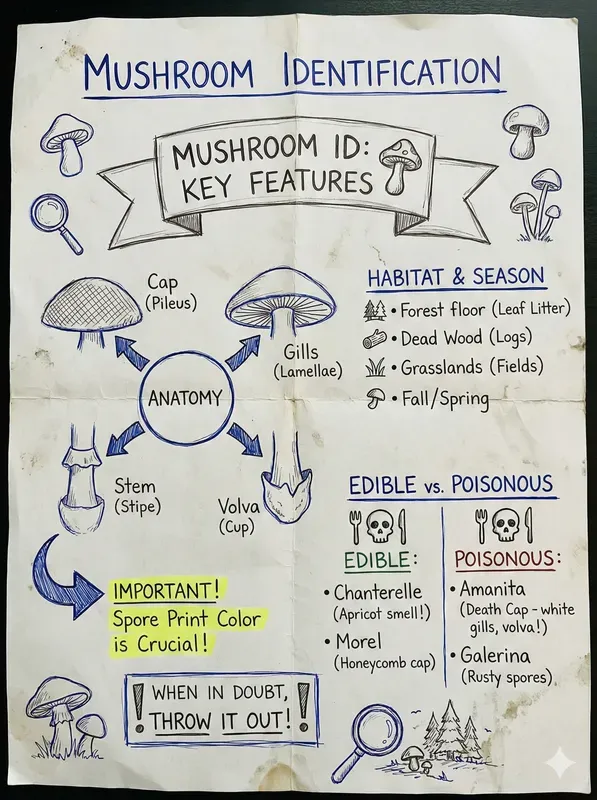 MUSHROOM IDENTIFICATION
MUSHROOM ID:
KEY FEATURES
Cap
(Pileus)
Gills
(Lamellae)
ANATOMY
Stem
(Stipe)
Volva
(Cup)
HABITAT & SEASON
• Forest floor (Leaf Litter)
• Dead Wood (Logs)
• Grasslands (Fields)
• Fall/Spring
IMPORTANT!
Spore Print Color
is Crucial!
EDIBLE vs. POISONOUS
EDIBLE:
• Chanterelle
(Apricot smell!)
• Morel
(Honeycomb cap)
POISONOUS:
• Amanita
(Death Cap - white
gills, volva!)
• Galerina
(Rusty spores)
! WHEN IN DOUBT, !
THROW IT OUT!